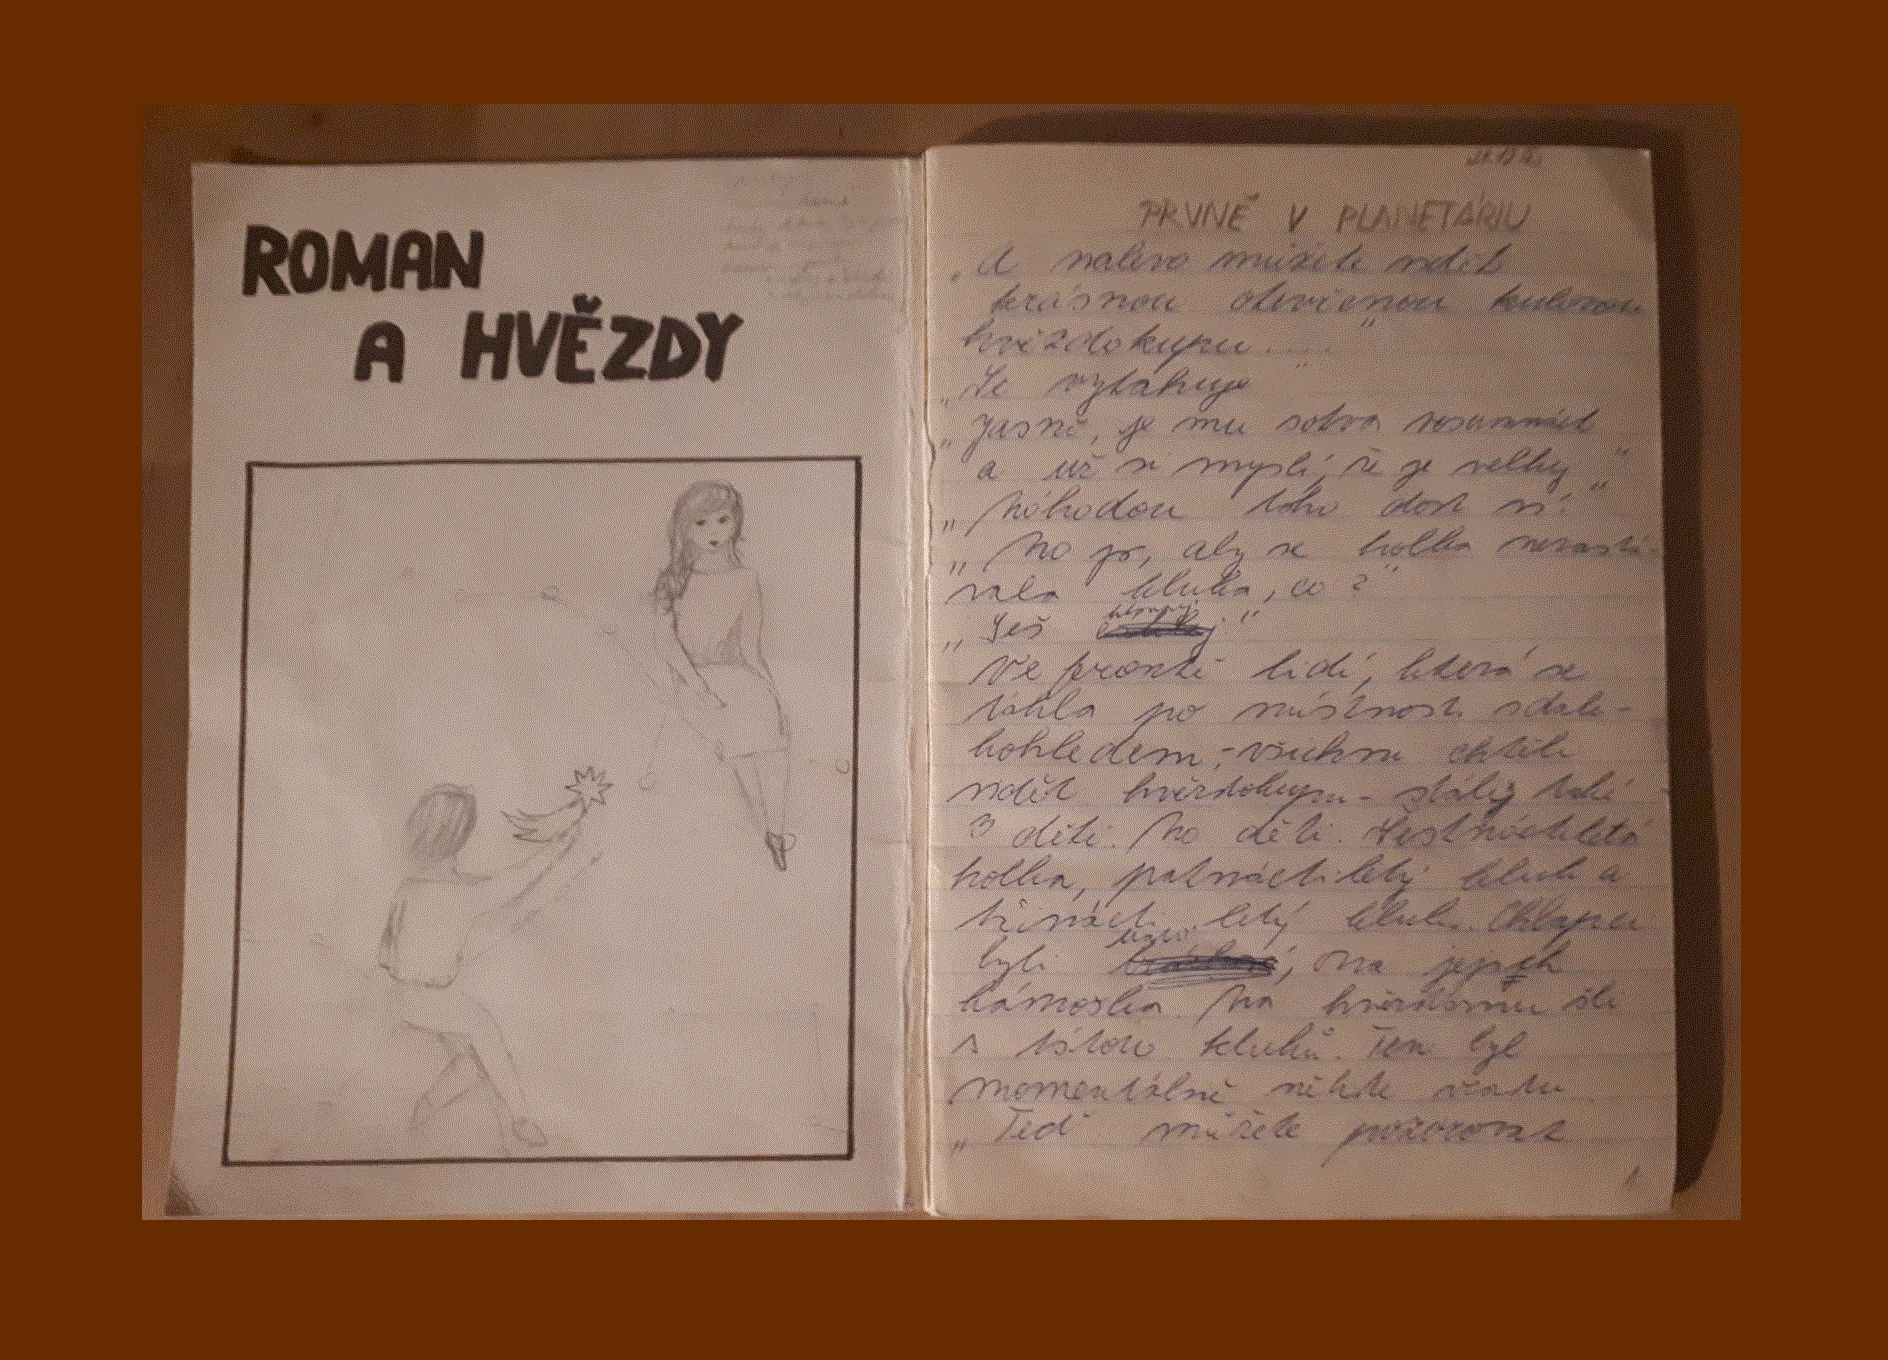 ROMAN
A HVĚZDY
PRVNĚ V PLANETÁRIU
„A nalevo můžete vidět
krásnou otevřenou kulovou
hvězdokupu....."
„Se vytahuje"
„Jasně, je mu sotva osmnáct
a už si myslí, že je velký"
„Náhodou toho dost ví."
„No jo, aby se holka nezastá-
vala kluka, co?"
„Seš
Ve frontě lidí, která se
táhla po místnosti s dale-
kohledem, - všichni chtěli
vidět hvězdokupu - stály také
3 děti. No děti. Šestnáctiletá
holka, patnáctiletý kluk a
třináctiletý kluk. Chlapci
byli , ona jejich
kámoška Na hvězdárnu šli
s tátou kluků. Ten byl
momentálně někde vzadu
„Teď můžete pozorovat
1